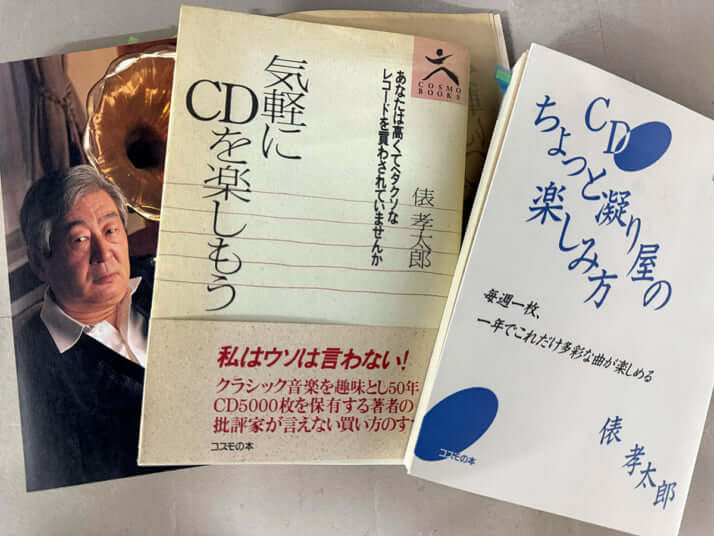 気軽に
CDを楽しもう
あなたは高くてヘタクソな
レコードを買わされていませんか
俵 孝太郎
COSMO
BOOKS
私はウソは言わない!
クラシック音楽を趣味とし50年
CD5000枚を保有する著者の
批評家が言えない買い方のす
コスモの本
CD
ちょっと凝り屋の
楽しみ方
毎週一枚、
一年でこれだけ多彩な曲が楽しめる
俵 孝太郎
コスモの本